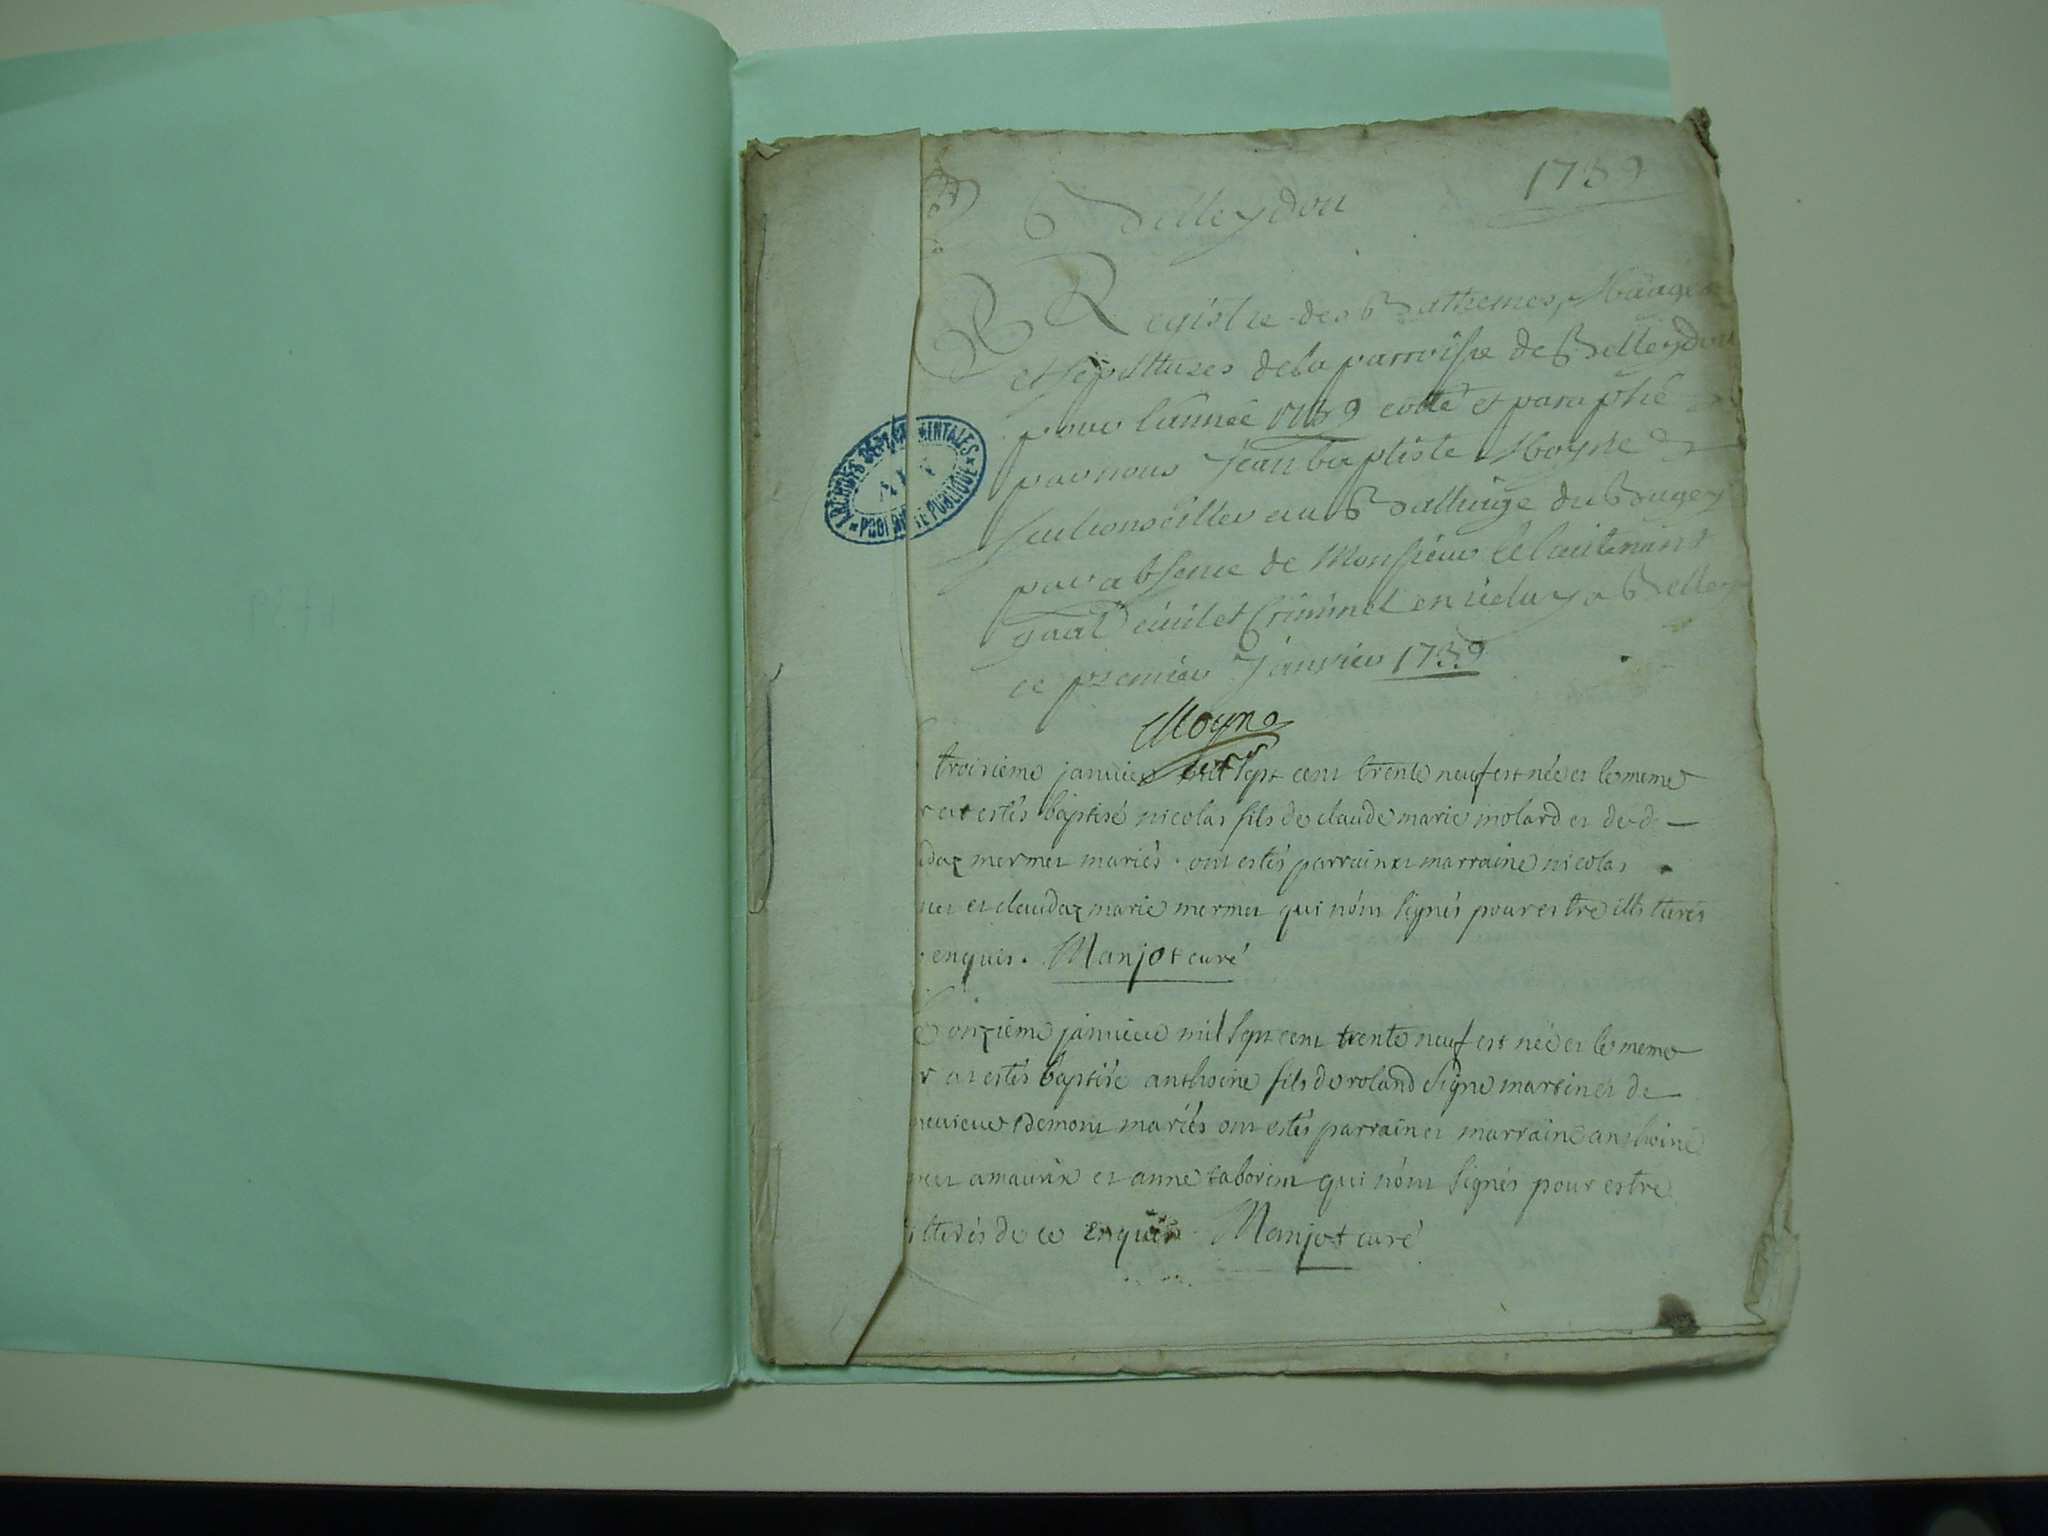 1739
Belleydou
Registre des Bathemes, Mariages
et sepultures de la parroisse de Belleydou
pour l'année 1739 cotté et paraphé
par nous Jean baptiste Moyne
seul conseiller au Balliage du Bugey
par absence de Monsieur le Lieutenant
gnal civil et Criminel en iceluy a Belley
ce premier Janvier 1739
Moyne
ARCHIVES DÉPARTEMENTALES
AIN
PROPRIÉTÉ PUBLIQUE
troisieme janvier mil sept cent trente neuf est née et le meme
r at estés baptisé nicolas fils de claude marie molard et de
daz mermet mariés ont estés parrain et marraine nicolas
et claudaz marie mermet qui n'ont signés pour estre illiturés
enquis. Manjot curé
onzieme janvier mil sept cent trente neuf est née et le meme
r at estés baptisé anthoine fils de roland signe martin et de
demont mariés ont estés parrain et marraine anthoine
amaurix et anne taborin qui n'ont signés pour estre
illterés de ce enquis Manjot curé
1739